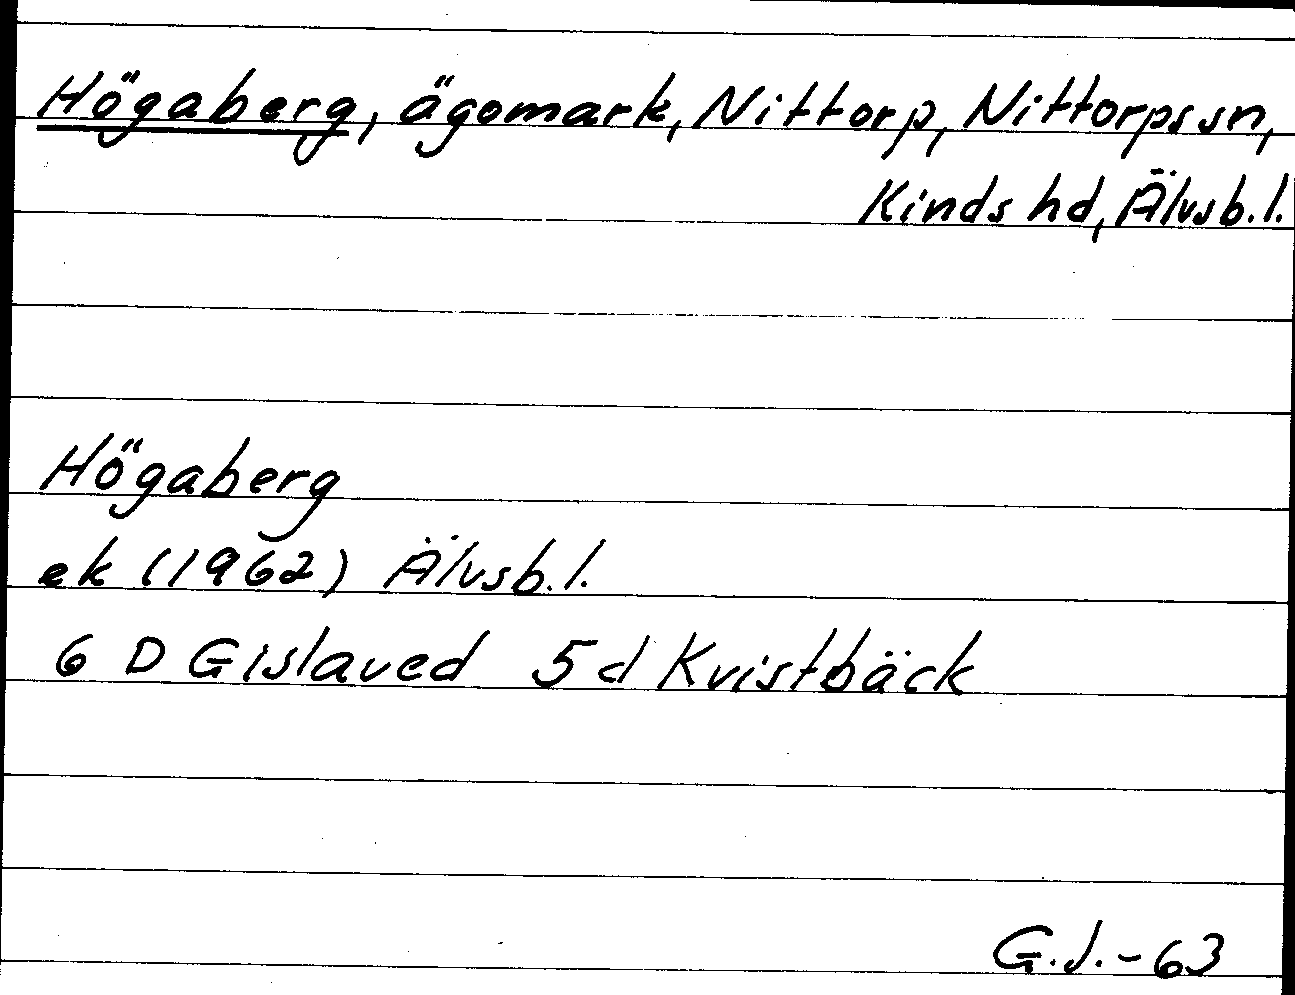 Högaberg, ägomark, Nittorp, Nittorps sn,
Kinds hd, Älvsb.l.
Högaberg
ek (1962) Älvsb.l.
6 D Gislaved 5 d Kvistbäck
G.J.-63